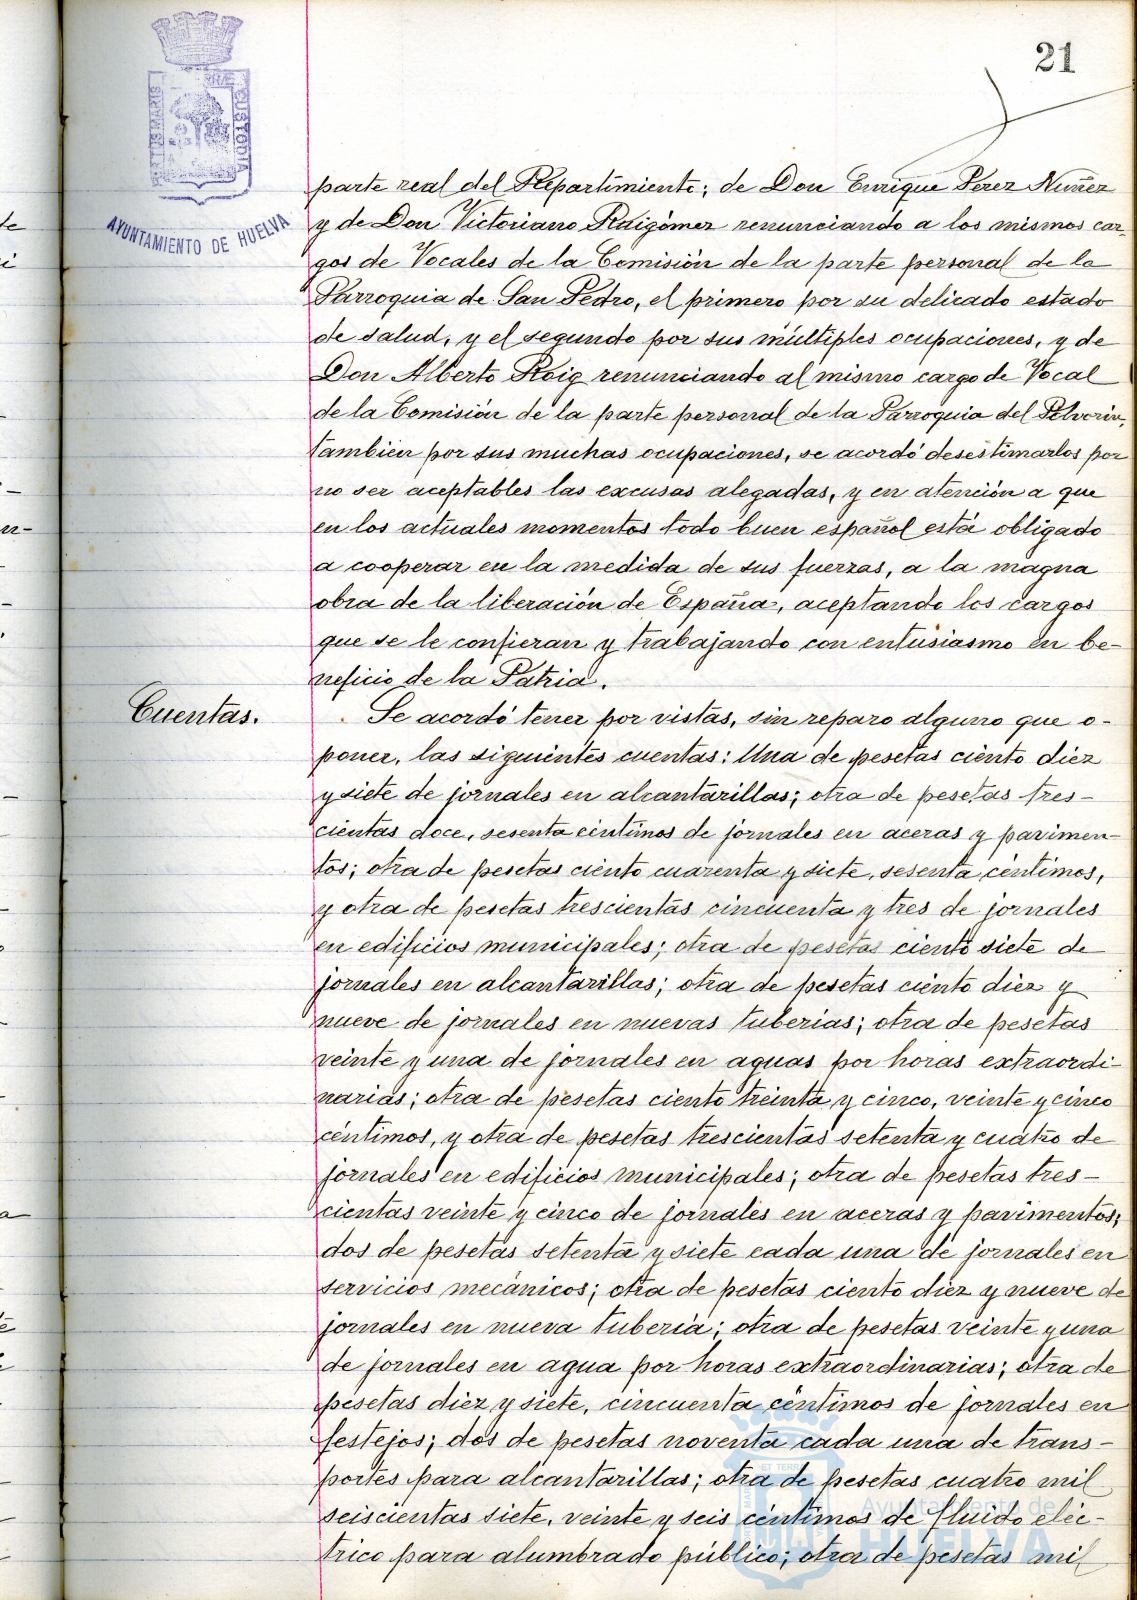 21
PORTUS MARIS
TERRAE CUSTODIA
AYUNTAMIENTO DE HUELVA
parte real del Repartimiento; de Don Enrique Perez Nuñez
y de Don Victoriano Raigómez renunciando a los mismos car-
gos de Vocales de la Comisión de la parte personal de la
Parroquia de San Pedro, el primero por su delicado estado
de salud, y el segundo por sus múltiples ocupaciones, y de
Don Alberto Roig renunciando al mismo cargo de Vocal
de la Comisión de la parte personal de la Parroquia del Polvorin,
tambien por sus muchas ocupaciones, se acordó desestimarlos por
no ser aceptables las excusas alegadas, y en atención a que
en los actuales momentos todo buen español está obligado
a cooperar en la medida de sus fuerzas, a la magna
obra de la liberación de España, aceptando los cargos
que se le confieran y trabajando con entusiasmo en be-
neficio de la Patria.
Cuentas.
Se acordó tener por vistas, sin reparo alguno que o-
poner, las siguientes cuentas: Una de pesetas ciento diez
y siete de jornales en alcantarillas; otra de pesetas tres-
cientas doce, sesenta céntimos de jornales en aceras y pavimen-
tos; otra de pesetas ciento cuarenta y siete, sesenta céntimos,
y otra de pesetas trescientas cincuenta y tres de jornales
en edificios municipales; otra de pesetas ciento siete de
jornales en alcantarillas; otra de pesetas ciento diez y
nueve de jornales en nuevas tuberias; otra de pesetas
veinte y una de jornales en aguas por horas extraordi-
narias; otra de pesetas ciento treinta y cinco, veinte y cinco
céntimos, y otra de pesetas trescientas setenta y cuatro de
jornales en edificios municipales; otra de pesetas tres-
cientas veinte y cinco de jornales en aceras y pavimentos;
dos de pesetas setenta y siete cada una de jornales en
servicios mecánicos; otra de pesetas ciento diez y nueve de
jornales en nueva tuberia; otra de pesetas veinte y una
de jornales en agua por horas extraordinarias; otra de
pesetas diez y siete, cincuenta céntimos de jornales en
festejos; dos de pesetas noventa cada una de trans-
portes para alcantarillas; otra de pesetas cuatro mil
seiscientas siete, veinte y seis céntimos de fluido eléc-
trico para alumbrado público; otra de pesetas mil
Ayuntamiento de
HUELVA